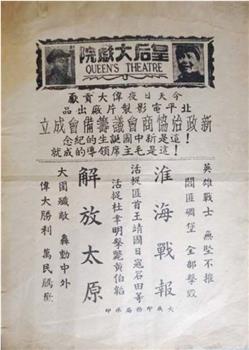 皇后大戲院
QUEEN'S THEATRE
今天日夜偉大貢獻
北平電影製片廠出品
新政治協商會議籌備會成立
這是新中國誕生的紀念！
這是毛主席領導的成就！
英雄戰士 無堅不摧
閻匪碉堡 全部擊毀
淮海戰報
活捉匪首王靖國日寇岩田等
活捉杜聿明擊斃黃伯韜
解放太原
大圍殲敵 轟動中外
偉大勝利 萬民騰歡